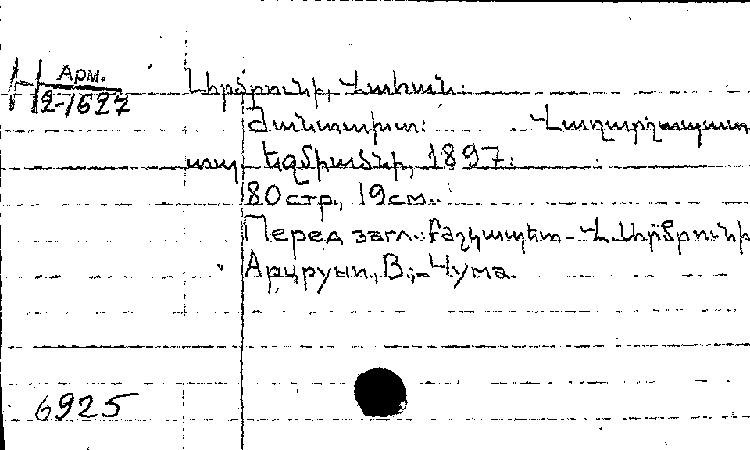 Арм.
Н 2-1627
Արծրունի, Վահան.
Ժանտախտ: Վաղարշապատ
տպ. Էջմիածնի, 1897.
80 стр., 19 см.
Перед загл.: Բժշկապետ Վ. Արծրունի
Арцруни, В.,- Чума.
6925